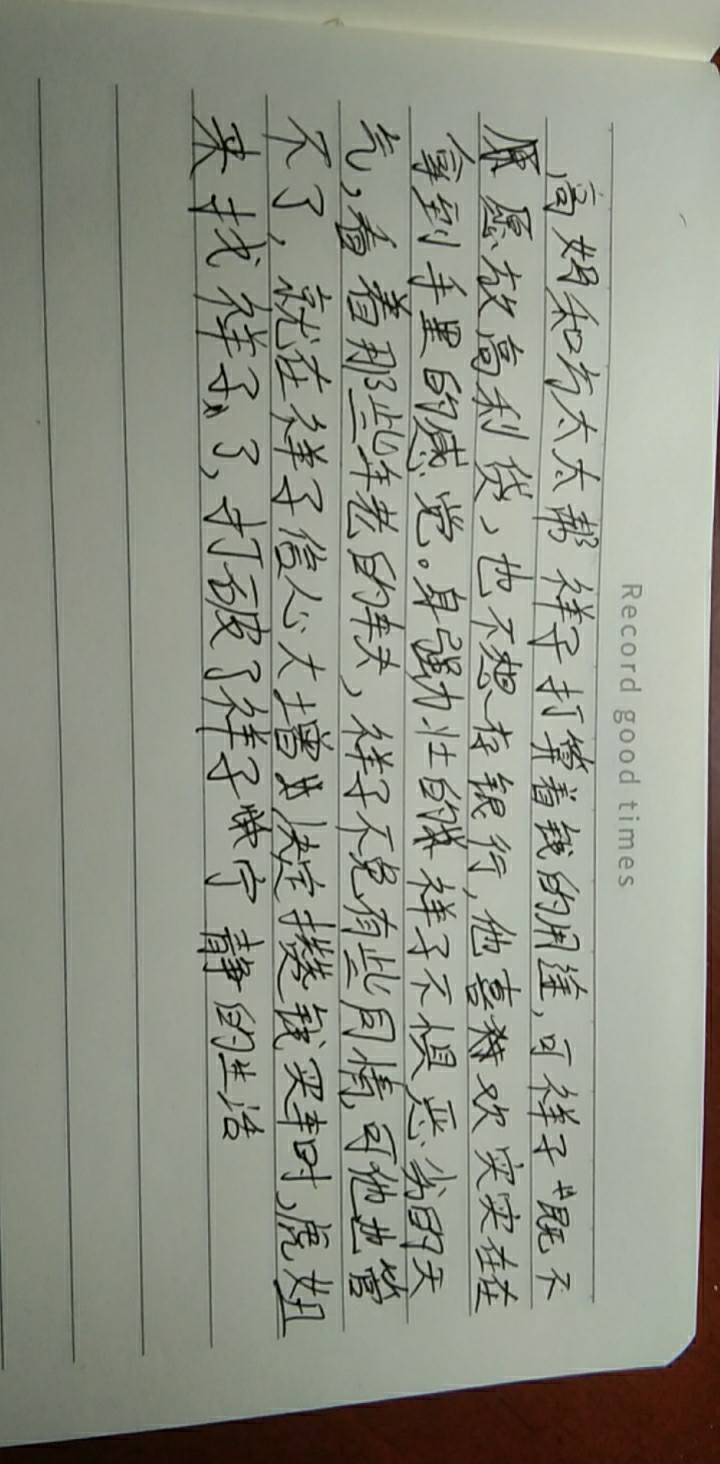 Record good times
高妈和方太太帮祥子打算着钱的用途,可祥子既不
愿放高利贷,也不想存银行,他喜欢实实在在
拿到手里的感觉。身强力壮的祥子不惧恶劣的天
气,看着那些年老的车夫,祥子不免有些同情,可他也管
不了,就在祥子信心大增决定攒钱买车时,虎妞
来找祥子了,打破了祥子宁静的生活